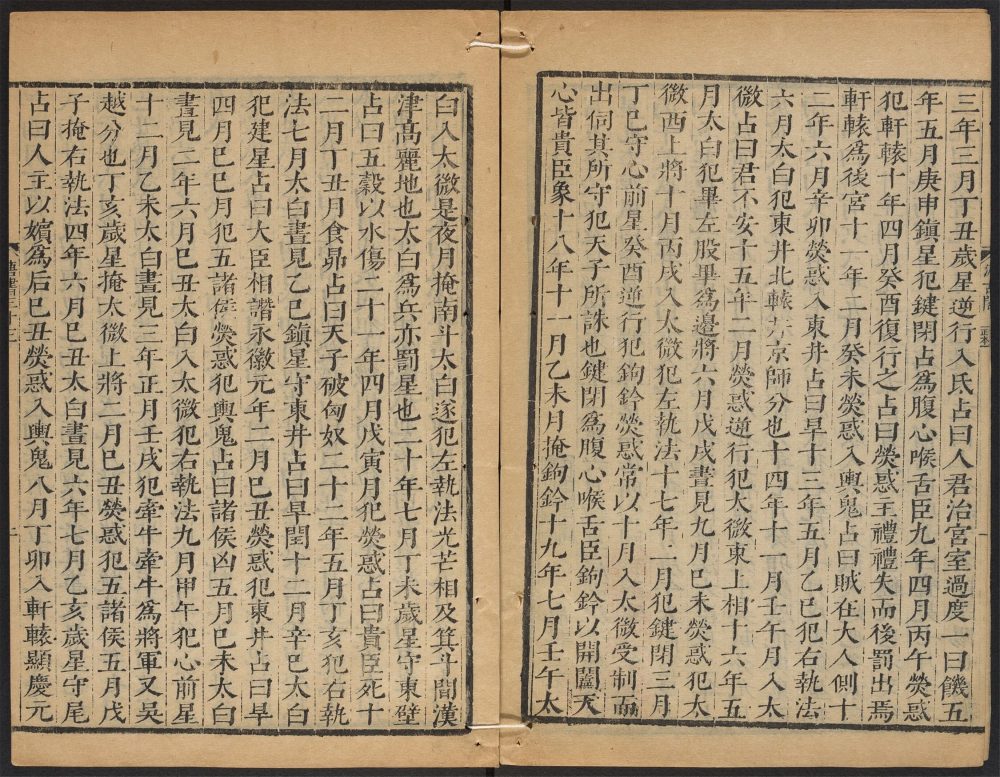 三年三月丁丑歲星逆行入氐占曰人君治宮室過度一曰饑五
年五月庚申鎮星犯鍵閉占爲腹心喉舌臣九年四月丙午熒惑
犯軒轅十年四月癸酉復行之占曰熒惑主禮禮失而後罰出焉
軒轅爲後宮十一年二月癸未熒惑入輿鬼占曰賊在大人側十
二年六月辛卯熒惑入東井占曰旱十三年五月乙巳犯右執法
六月太白犯東井北轅井京師分也十四年十一月壬午月入太
微占曰君不安十五年二月熒惑逆行犯太微東上相十六年五
月太白犯畢左股畢爲邊將六月戊戌晝見九月巳未熒惑犯太
微西上將十月丙戌入太微犯左執法十七年二月犯鍵閉三月
丁巳守心前星癸酉逆行犯鉤鈐熒惑常以十月入太微受制而
出伺其所守犯天子所誅也鍵閉爲腹心喉舌臣鉤鈐以開闔天
心皆貴臣象十八年十一月乙未月掩鉤鈐十九年七月壬午太
白入太微是夜月掩南斗太白遂犯左執法光芒相及箕斗間漢
津高麗地也太白爲兵亦罰星也二十年七月丁未歲星守東壁
占曰五穀以水傷二十一年四月戊寅月犯熒惑占曰貴臣死十
二月丁丑月食昴占曰天子破匈奴二十二年五月丁亥犯右執
法七月太白晝見乙巳鎮星守東井占曰旱閏十二月辛巳太白
犯建星占曰大臣相譖永徽元年二月巳丑熒惑犯東井占曰旱
四月巳巳月犯五諸侯熒惑犯輿鬼占曰諸侯凶五月巳未太白
晝見二年六月巳丑太白入太微犯右執法九月甲午犯心前星
十二月乙未太白晝見三年正月壬戌犯牽牛牽牛爲將軍又吳
越分也丁亥歲星掩太微上將二月巳丑熒惑犯五諸侯五月戊
子掩右執法四年六月巳丑太白晝見六年七月乙亥歲星守尾
占曰人主以嬪爲后巳丑熒惑入輿鬼八月丁卯入軒轅顯慶元